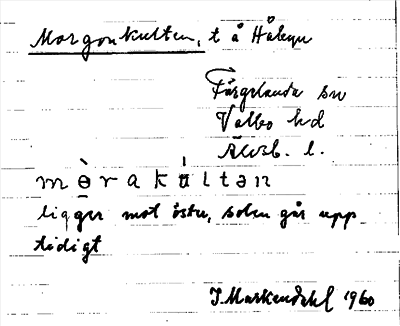 Morgonkulten, t å Håbyn
Färgelanda sn
Valbo hd
Älvsb. l.
mɵ̀rakʉ́ltən
ligger mot öster, solen går upp
tidigt
J. Markendahl 1960